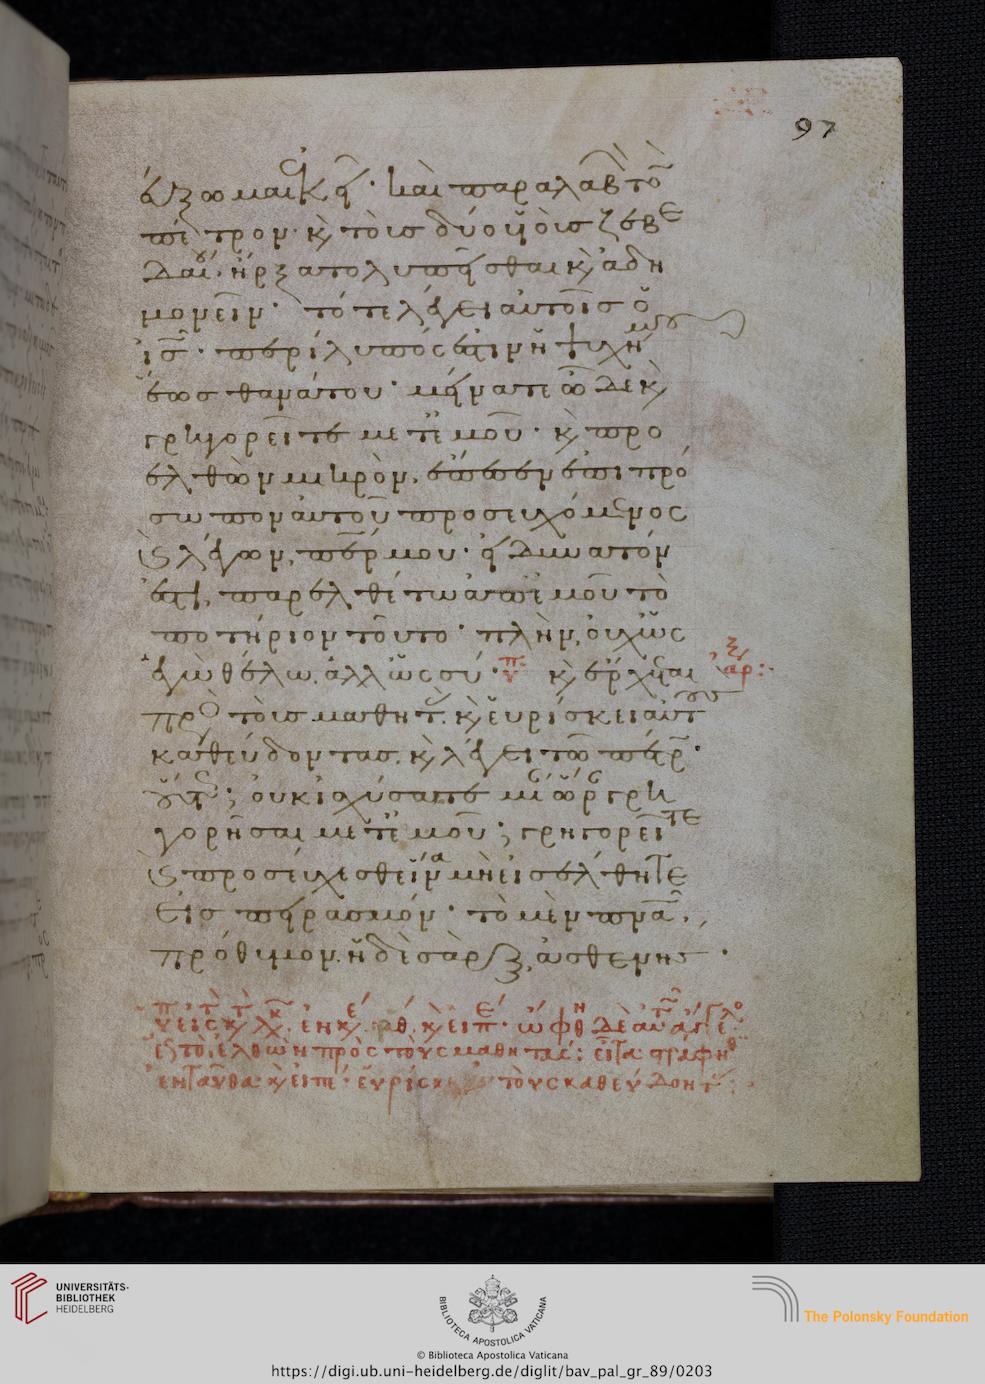 97
εύξωμαι ἐκεῖ· καὶ παραλαβ τὸ
πέτρον· κ τοὺσ δύο υἱοὺσ ζεβε
δαίου· ἤρξατο λυπεῖσθαι κ ἀδη
μονεῖν· τότε λέγει αὐτοῖσ ὁ
ισ· περίλυπός ἐστιν ἡ ψυχή μου
ἕωσ θανάτου· μείνατε ὧδε κ
γρηγορεῖτε μετ ἐμοῦ· κ προ
ελθὼν μικρὸν, ἔπεσεν ἐπὶ πρό
σωπον αὐτοῦ προσευχόμενος
κ λέγων, περ μου· εἰ δυνατόν
ἐστι, παρελθέτω ἀπ ἐμοῦ τὸ
ποτήριον τοῦτο· πλὴν, οὐχ ὡς
ἐγὼ θέλω. ἀλλ ὡς σύ· κ ἔρχεται
πρὸ τοὺσ μαθητ. κ εὑρίσκει αὐτους
καθεύδοντασ. κ λέγει τῶ πέτρ·
οὕτως; οὐκ ἰσχύσατε μίαν ὥραν γρη
γορῆσαι μετ ἐμοῦ; γρηγορεῖτε
κ προσεύχεσθε ἵνα μὴ εἰσέλθητε
εἰσ πειρασμόν· τὸ μὲν πνα,
πρόθυμον. ἡ δὲ σὰρξ, ἀσθενησ·
ὤφθη δὲ αὐτ ἀγγελο
ἐλθὼν πρὸς τοὺς μαθητάς: εἶτα στράφηθ
ἐνταῦθα· κ εἰπέ· εὑρίσκ τοὺς καθεύδοντ
UNIVERSITÄTS-
BIBLIOTHEK
HEIDELBERG
BIBLIOTECA APOSTOLICA VATICANA
© Biblioteca Apostolica Vaticana
The Polonsky Foundation
https://digi.ub.uni-heidelberg.de/diglit/bav_pal_gr_89/0203